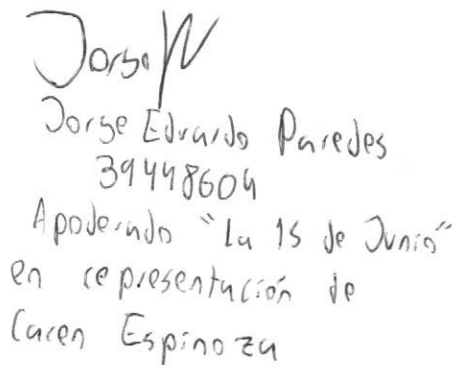 Jorge
Jorge Eduardo Paredes
39448604
Apoderado "La 15 de Junio"
en representación de
Caren Espinoza